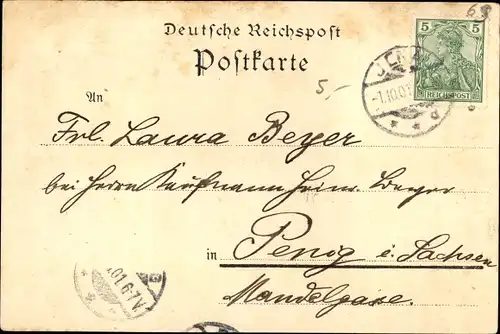 68
Deutsche Reichspost
Postkarte
5
REICHSPOST
5,-
-1.10.01
An
Frl. Laura Beyer
bei Herrn Kaufmann Heinr. Berger
in Penig i. Sachsen
Mandelgasse.
.01.6-7V.